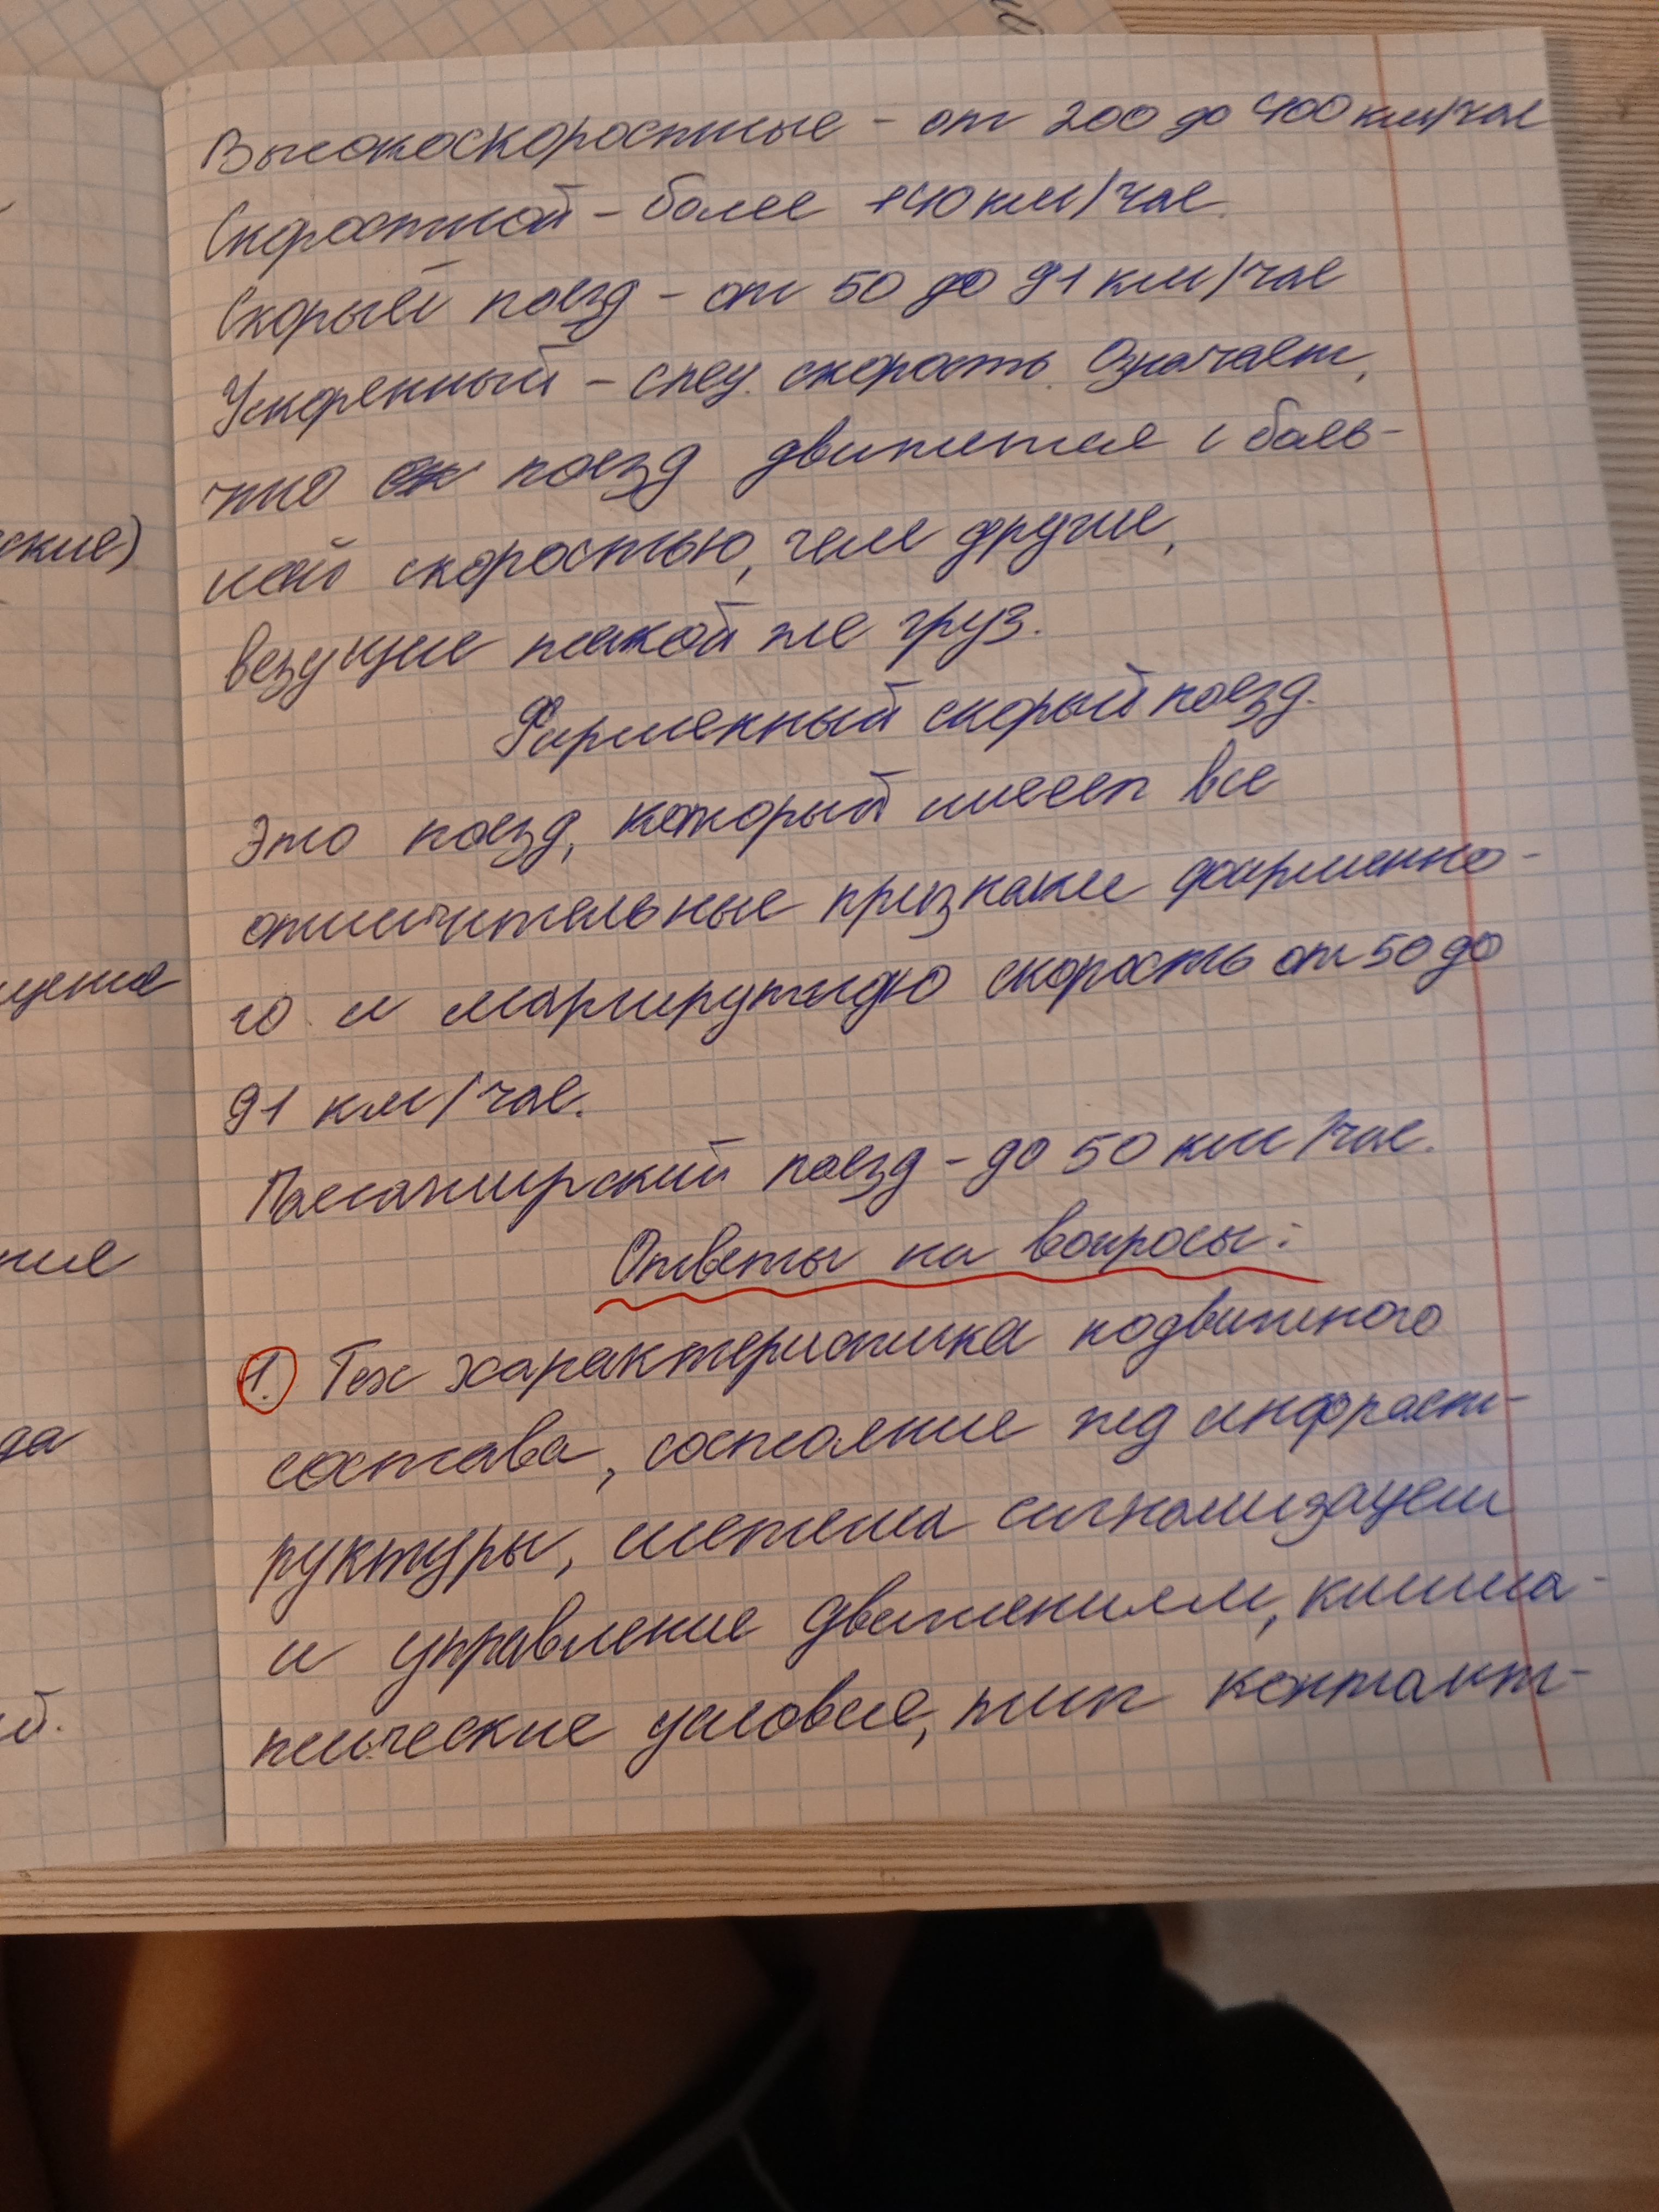 Высокоскоростные - от 200 до 400 км/час
Скоростной - более 140 км/час.
Скорый поезд - от 50 до 91 км/час
Ускоренный - спец. скорость. Означает,
что поезд движется с боль-
шей скоростью, чем другие,
везущие такой же груз.
Фирменный скорый поезд.
Это поезд, который имеет все
отличительные признаки фирменно-
го и маршрутную скорость от 50 до
91 км/час.
Пассажирский поезд - до 50 км/час.
Ответы на вопросы:
1. Тех характеристика подвижного
состава, состояние жд инфраст-
руктуры, система сигнализации
и управление движением, клима-
тические условие, тип контакт-
ские)
щена
ния
да
й.